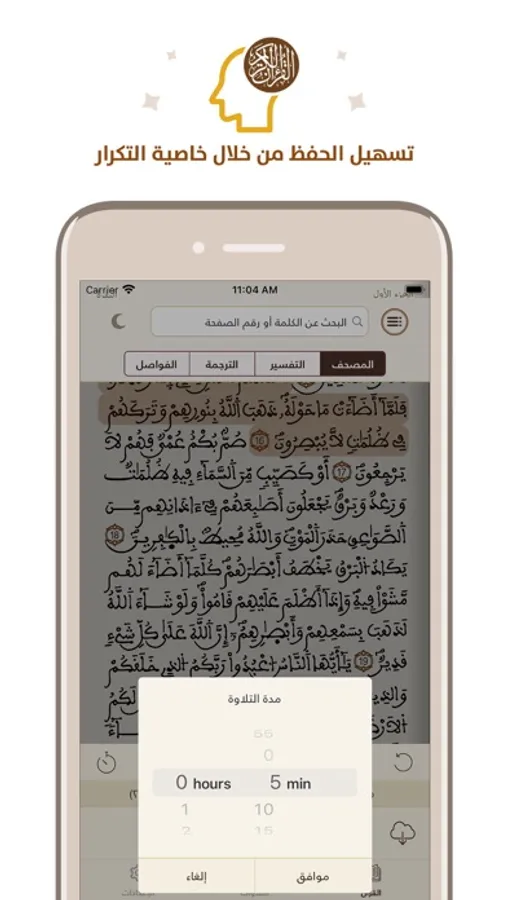 القرآن الكريم
تسهيل الحفظ من خلال خاصية التكرار
Carrier
11:04 AM
الجزء الأول
البحث عن الكلمة أو رقم الصفحة
المصحف
التفسير
الترجمة
الفواصل
فَلَمَّآ أَضَآءَتْ مَا حَوْلَهُۥ ذَهَبَ اَللَّهُ بِنُورِهِمْ وَتَرَكَهُمْ
فِے ظُلُمَٰتٖ لَّا يُبْصِرُونَ 16 صُمُّۢ بُكْمٌ عُمْيٞ فَهُمْ لَا
يَرْجِعُونَ 17 أَوْ كَصَيِّبٖ مِّنَ اَلسَّمَآءِ فِيهِ ظُلُمَٰتٞ
وَرَعْدٞ وَبَرْقٞ يَجْعَلُونَ أَصَٰبِعَهُمْ فِےٓ ءَاذَانِهِم مِّنَ
اَلصَّوَٰعِقِ حَذَرَ اَلْمَوْتِ وَاللَّهُ مُحِيطُۢ بِالْكَٰفِرِينَ 18
يَكَادُ اُلْبَرْقُ يَخْطَفُ أَبْصَٰرَهُمْ كُلَّمَآ أَضَآءَ لَهُم
مَّشَوْاْ فِيهِ وَإِذَآ أَظْلَمَ عَلَيْهِمْ قَامُواْ وَلَوْ شَآءَ اَللَّهُ
لَذَهَبَ بِسَمْعِهِمْ وَأَبْصٰرِهِمُۥٓ إِنَّ اَللَّهَ عَلَىٰ كُلِّ شَےْءٖ
قَدِيرٞ 19 يَٰٓأَيُّهَا اَلنَّاسُ اُعْبُدُواْ رَبَّكُمُ اُلذِے خَلَقَكُمْ
وَالذِينَ
لَكُمُ
اُلَارْضَ
مدة التلاوة
55
0
0 hours 5 min
1 10
2 15
موافق
إلغاء